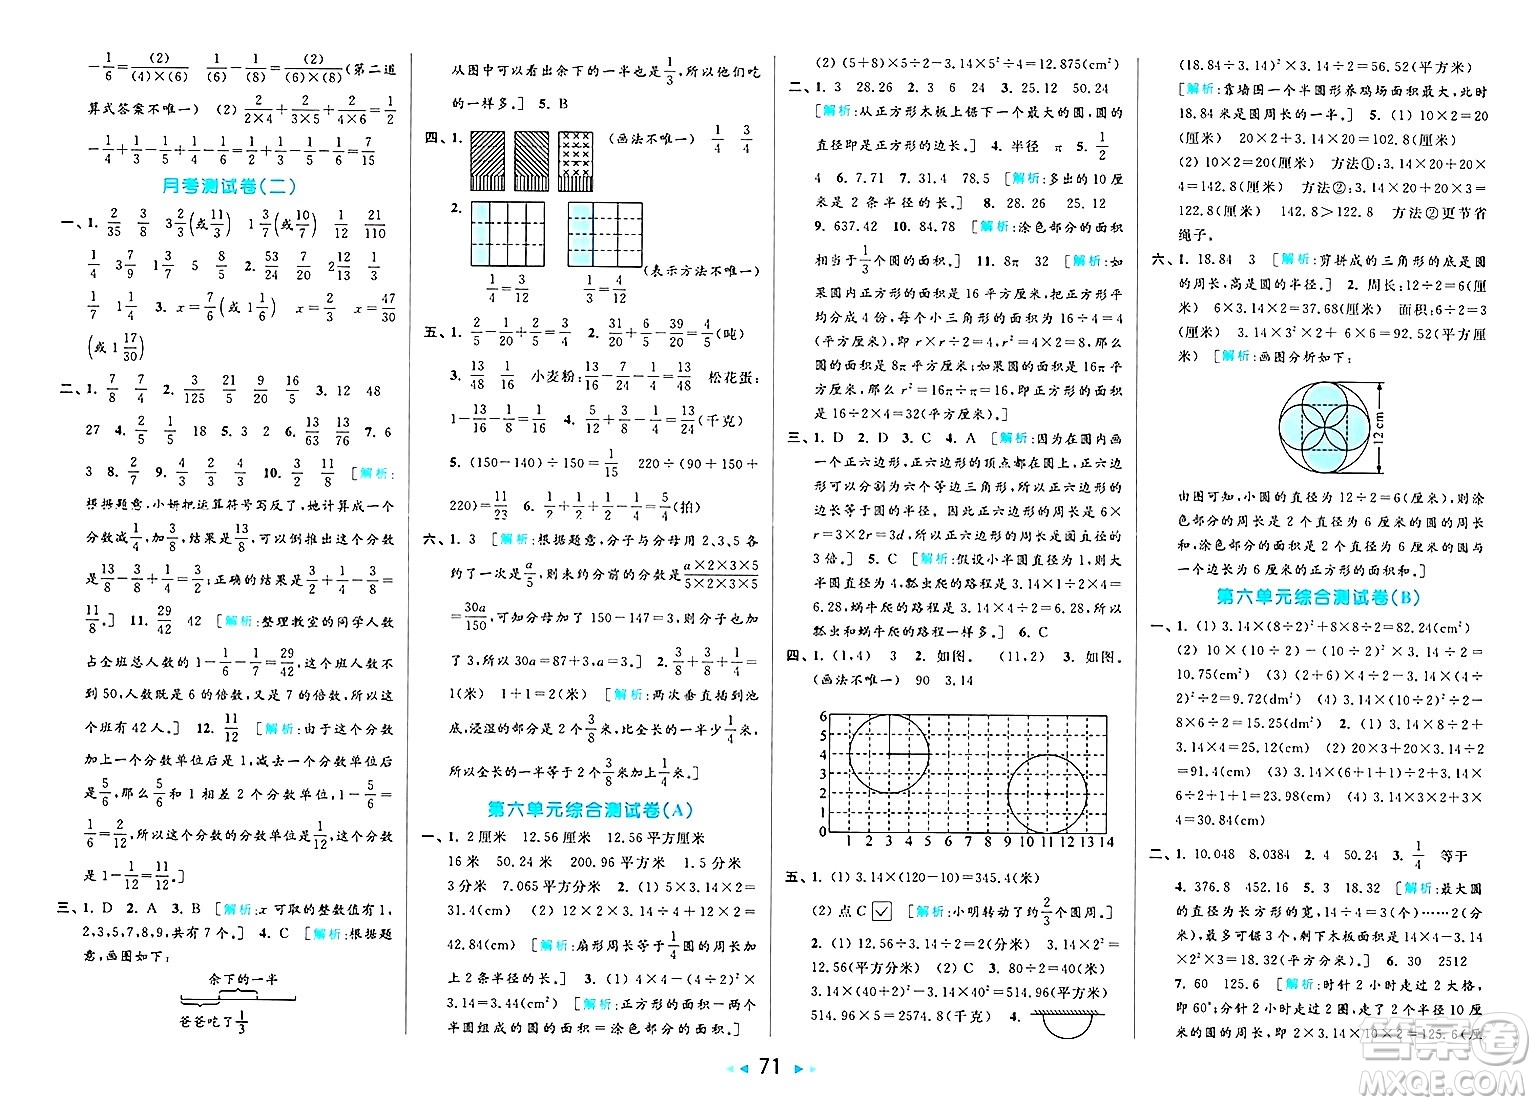 -1/6=(2)/((4)×(6)) 1/(6)-1/(8)=(2)/((6)×(8))(第二道
算式答案不唯一) (2)2/(2×4)+2/(3×5)+2/(4×6)=1/2
-1/4+1/3-1/5+1/4-1/6=1/2+1/3-1/5-1/6=7/15
月考测试卷(二)
一、1. 2/35 3/8 3 2/3(或11/3) 1 3/7(或10/7) 1/12 21/110
1/4 3 7/9 5 5/8 2. 53/24 7/20 11/12 2/5
1/7 1 1/4 3. x=7/6(或1 1/6) x=2/3 x=47/30
(或1 17/30)
二、1. 7/8 7/4 2. 3/125 5/21 9/20 16/5 3. 12 48
27 4. 2/5 1/5 18 5. 3 2 6. 13/63 13/76 7. 6
3 8. 13/7 9. 4/15 3/20 10. 3/2 11/8 [解析:
根据题意,小妍把运算符号写反了,她计算成一个
分数减1/4,加3/8,结果是13/8,可以倒推出这个分数
是13/8-3/8+1/4=3/2;正确的结果是3/2+1/4-3/8=
11/8。] 11. 29/42 42 [解析:整理教室的同学人数
占全班总人数的1-1/6-1/7=29/42,总人数在40
到50,人数既是6的倍数,又是7的倍数,所以这
个班有42人。] 12. 11/12 [解析:由于这个分数
加上一个分数单位后是1,减去一个分数单位后是
5/6,那么2个这样的分数单位的和是1-5/6=
1/6=2/12,所以这个分数的分数单位是1/12,这个分数
是1-1/12=11/12。]
三、1. D 2. A 3. B [解析:x可取的整数值有1,
2,3,5,7,8,9,共有7个。] 4. C [解析:根据题
意,画图如下:
余下的一半
爸爸吃了1/3
从图中可以看出余下的一半也是1/3,所以他们吃
的一样多。] 5. B
四、1. (画法不唯一) 1/4 3/4
2.
1/4=3/12 1/2=4/8 (表示方法不唯一)
五、1. 2/5-1/20+2/5=3/4 2. 31/20+6/20-39/20=4/5(吨)
3. 13/48 1/16 小麦粉:13/16-7/24=1/4 松花蛋:
1-13/16-1/8=1/16 4. 5/12+3/8-1/4=13/24(千克)
5. (150-140)÷150=1/15 220÷(150+90+
220)=11/23 6. 1/2+1/2+1/4=5/4(拍)
六、1. 3 [解析:根据题意,分子与分母用2、3、5各
约了一次是a/5,则未约分前的分数是(a×2×3×5)/(5×2×3×5)
=30a/150,分母比原来多了150-147=3,则分子也加
了3,所以30a=87+3,a=3。] 2. 3/8+3/8+1/4=
1(米) 1+1=2(米) [解析:两次垂直插到池
底,浸湿的部分是2个3/8米,没有浸湿的部分是1/4米,
所以全长的一半等于2个3/8米加1/4米。]
第六单元综合测试卷(A)
一、1. 2厘米 12.56厘米 12.56平方厘米
16米 50.24米 200.96平方米 1.5分米
3分米 7.065平方分米 2. (1) 5×3.14×2=
31.4(cm) (2) 12×2+12×2×3.14×1/4=
42.84(cm) [解析:扇形周长等于1/4圆的周长加
上2条半径的长。] 3. (1) 4×4-(4÷2)²×
3.14=3.44(cm²) [解析:正方形的面积-两个
半圆组成的圆的面积=涂色部分的面积。]
(2) (5+8)×5÷2-3.14×5²÷4=12.875(cm²)
二、1. 3 28.26 2. 3 6 24 3. 25.12 50.24
[解析:从正方形木板上锯下一个最大的圆,圆的
直径是正方形的边长。] 4. 半径 π 5. 1/2
4 6. 21 7. 31.4 78.5 [解析:多出的10厘
米是2条半径的长。] 8. 28.26 25.12
9. 637.42 10. 84.78 [解析:涂色部分的面积
相当于1/3个圆的面积。] 11. 8π 32 [解析:如
果图内正方形的面积是16平方厘米,将正方形
平均分成4份,每个小三角形的面积是16÷2÷2=4
(平方厘米),即r×r÷2=4,r²=4×2=8,那么
圆的面积是8π平方厘米;如果圆的面积是16π平
方厘米,那么r²=16π÷π=16,正方形的面积是
16÷2×4=32(平方厘米)。]
三、1. D 2. D 3. C 4. A [解析:因为在圆内画
一个正六边形,正六边形的顶点都在圆上,正六边
形可以分割为六个等边三角形,所以正六边形的
边长等于圆的半径。因此正六边形的周长是6×
r=3×2r=3d,所以正六边形的周长是圆直径的
3倍。] 5. C [解析:假设小半圆直径为1,则大
半圆直径为4,瓢虫爬的路程是3.14×1÷2×4=
6.28,蜗牛爬的路程是3.14×4÷2=6.28,所以
瓢虫和蜗牛爬的路程一样多。] 6. C
四、1. (1,4) 3 2. 如图。 (11,2) 3. 如图。
(画法不唯一) 90 3.14
6
5
4
3
2
1
0
1 2 3 4 5 6 7 8 9 10 11 12 13 14
五、1. (1) 3.14×(120-10)=345.4(米)
(2) 点C☑ [解析:小明转动了约2/3个圆周。]
2. (1) 12.56÷3.14÷2=2(分米) 3.14×2²=
12.56(平方分米) (2) C 3. 80÷2=40(米)
3.14×(40+2)²-3.14×40²=514.96(平方米)
514.96×5=2574.8(千克) 4.
(18.84÷3.14)²×3.14÷2=56.52(平方米)
[解析:靠墙围一个半圆形养鸡场面积最大,此时
18.84米是圆周长的一半。] 5. (1) 10×2=20
(厘米) 20×2+3.14×20=102.8(厘米)
(2) 10×2=20(厘米) 方法①:3.14×20+20×
4=142.8(厘米) 方法②:3.14×20+20×3=
122.8(厘米) 142.8>122.8 方法②更节省
绳子。
六、1. 18.84 3 [解析:剪拼成的三角形的底是圆
的周长,高是圆的半径。] 2. 周长:12÷2=6(厘
米) 6×3.14×2=37.68(厘米) 面积:6÷2=3(厘
米) 3.14×3²×2+6×6=92.52(平方厘
米) [解析:画图分析如下:
12 cm
由图可知,小圆的直径为12÷2=6(厘米),则涂
色部分的周长为2个直径为6厘米的圆的周长
和,涂色部分的面积是2个直径为6厘米的圆与
一个边长为6厘米的正方形的面积和。]
第六单元综合测试卷(B)
一、1. (1) 3.14×(8÷2)²+8×8÷2=82.24(cm²)
(2) 10×(10÷2)÷2-3.14×(10÷2÷
2)²÷2=9.72(dm²) (3) 3.14×(10÷2)²÷2-
8×6÷2=15.25(dm²) 2. (1) 3.14×8÷2+
3.14×4=25.12(cm) (2) 20×3+3.14×20÷2
=91.4(cm) (3) 3.14×(6+4)÷2+3.14×
6÷2+4=29.12(cm) (4) 3.14×4×2÷2+
4=30.84(cm)
二、1. 10.048 8.0384 2. 4 50.24 3. 1/4 等于
4. 376.8 452.16 5. 3 18.32 [解析:最大圆
的直径为长方形的宽,14÷4=3(个)……2(分
米),最多可锯3个,剩下木板面积为4×14-3.14
×(4÷2)²×3=18.32(平方分米)。] 6. 30 2512
7. 60 125.6 [解析:时针2小时走过2大格,
即60°;分针2小时走2圈,走了2个半径10厘
米的圆的周长,即2×3.14×10×2=125.6(厘
71
答案圈
MXQE.COM